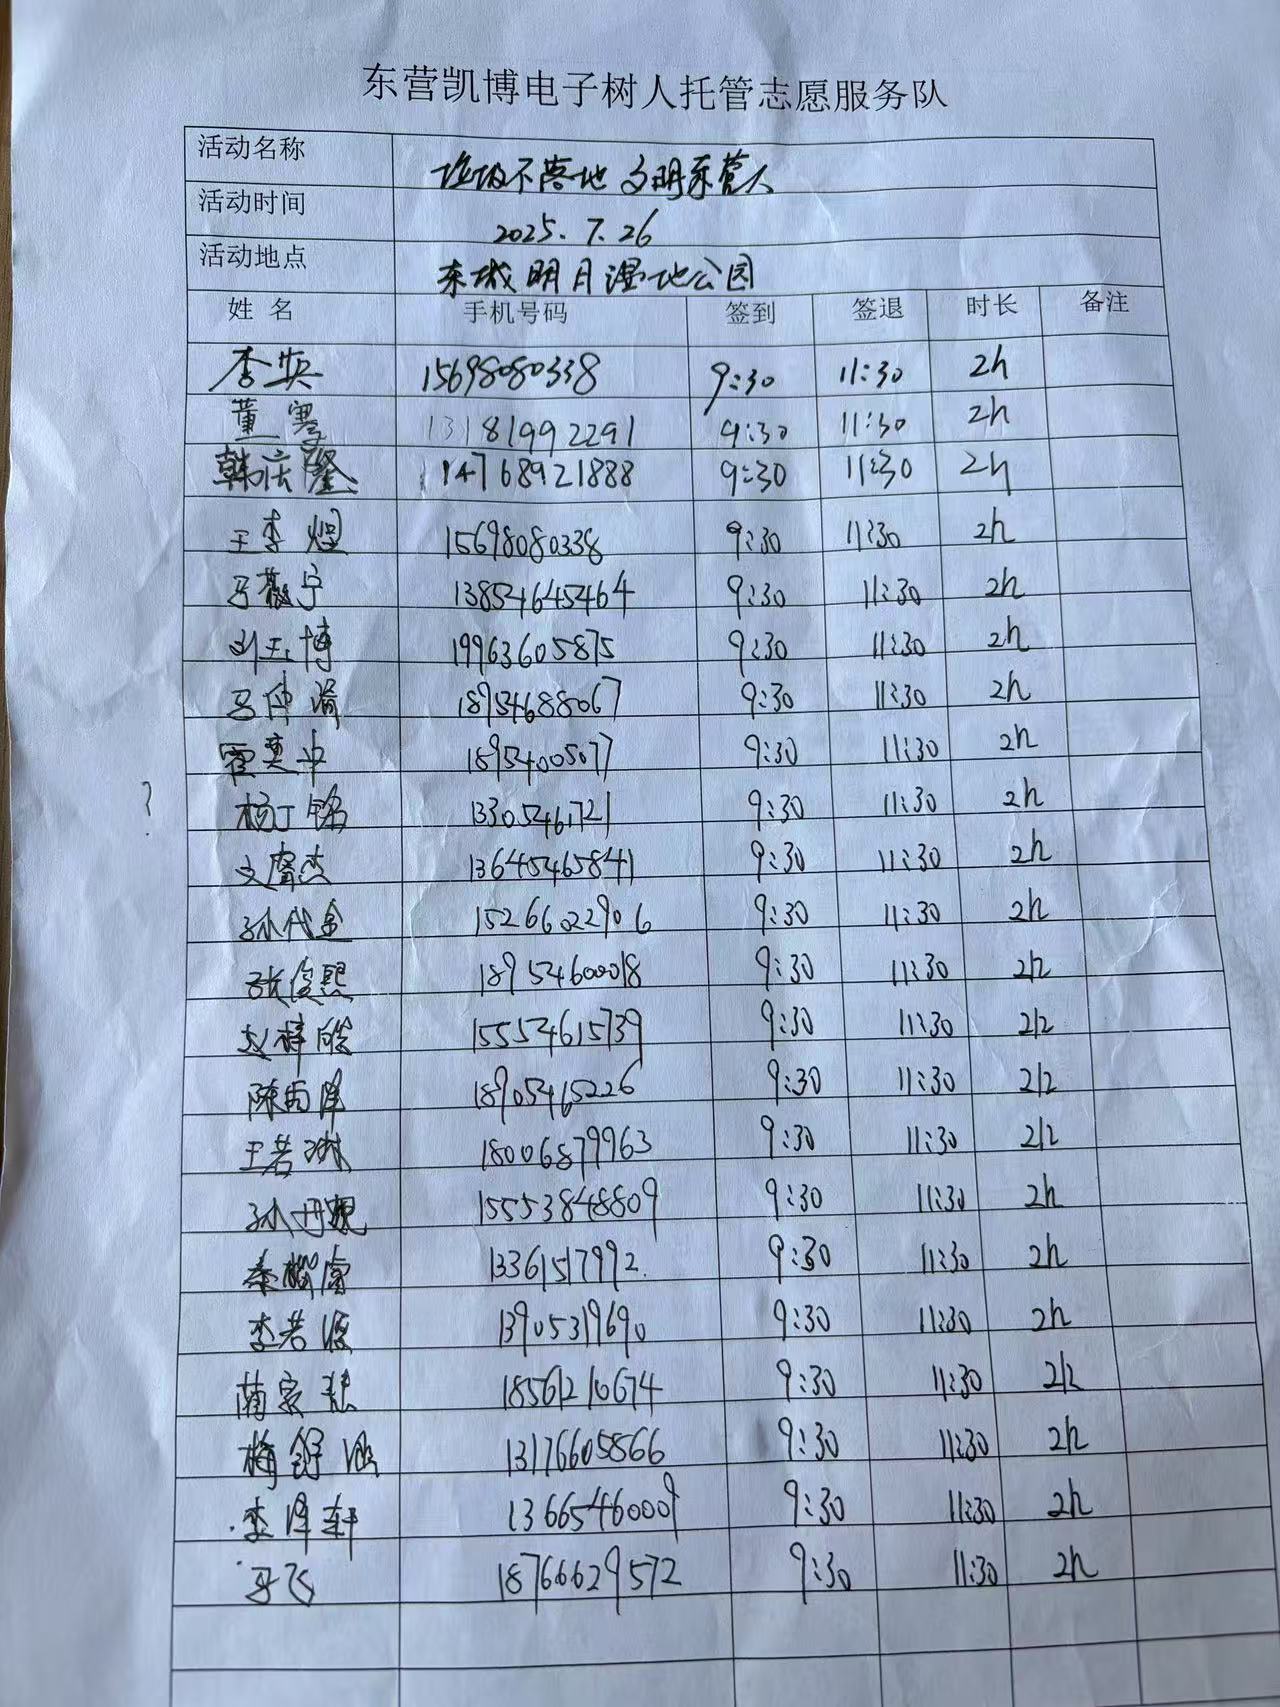 东营凯博电子树人托管志愿服务队
活动名称 垃圾不落地 文明东营人
活动时间 2025.7.26
活动地点 东城明月湿地公园
姓 名 手机号码 签到 签退 时长 备注
李英 15698080338 9:30 11:30 2h
董骞 13181992291 9:30 11:30 2h
韩庆隆 14768921888 9:30 11:30 2h
王李煜 15698080338 9:30 11:30 2h
马薇宁 13854645464 9:30 11:30 2h
刘玉博 19963605875 9:30 11:30 2h
马仲 18954688067 9:30 11:30 2h
霍奕 18954005077 9:30 11:30 2h
? 杨丁铭 13305461721 9:30 11:30 2h
文睿杰 13645465841 9:30 11:30 2h
孙代金 15266022906 9:30 11:30 2h
张俊熙 18954600018 9:30 11:30 2h
赵梓皓 15554615739 9:30 11:30 2h
陈雨泽 18905465226 9:30 11:30 2h
王若琳 18006879963 9:30 11:30 2h
孙丹 15553848809 9:30 11:30 2h
秦 睿 13361517992. 9:30 11:30 2h
李若源 13905319690 9:30 11:30 2h
蔺家 18561210674 9:30 11:30 2h
梅舒涵 13176605866 9:30 11:30 2h
李泽轩 13665460009 9:30 11:30 2h
马飞 18766629572 9:30 11:30 2h